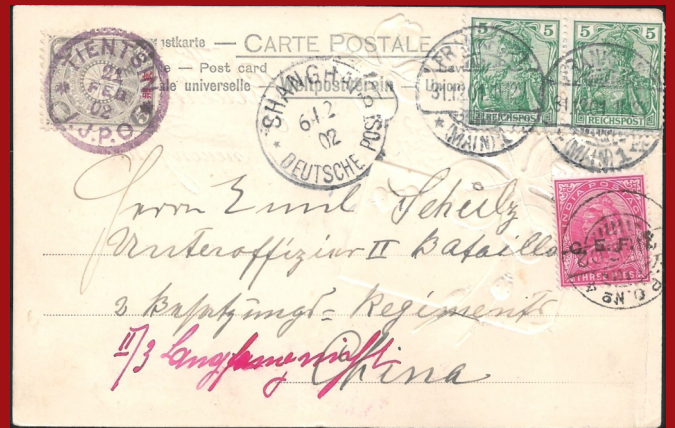 Postkarte — CARTE POSTALE
Post card
universelle — Weltpostverein — Union
TIENTSIN
21
FEB
02
I.J.P.O.
SHANGHAI
6 12
02
DEUTSCHE POST
5 5
REICHSPOST REICHSPOST
FRANKFURT
31.12.01
(MAIN) 1
(MAIN) 1
INDIA POSTAGE
C.E.F.
THREE PIES
Herrn Emil Schulz
Unteroffizier II Bataillon
3 Besatzungs- Regiments
II/3
China